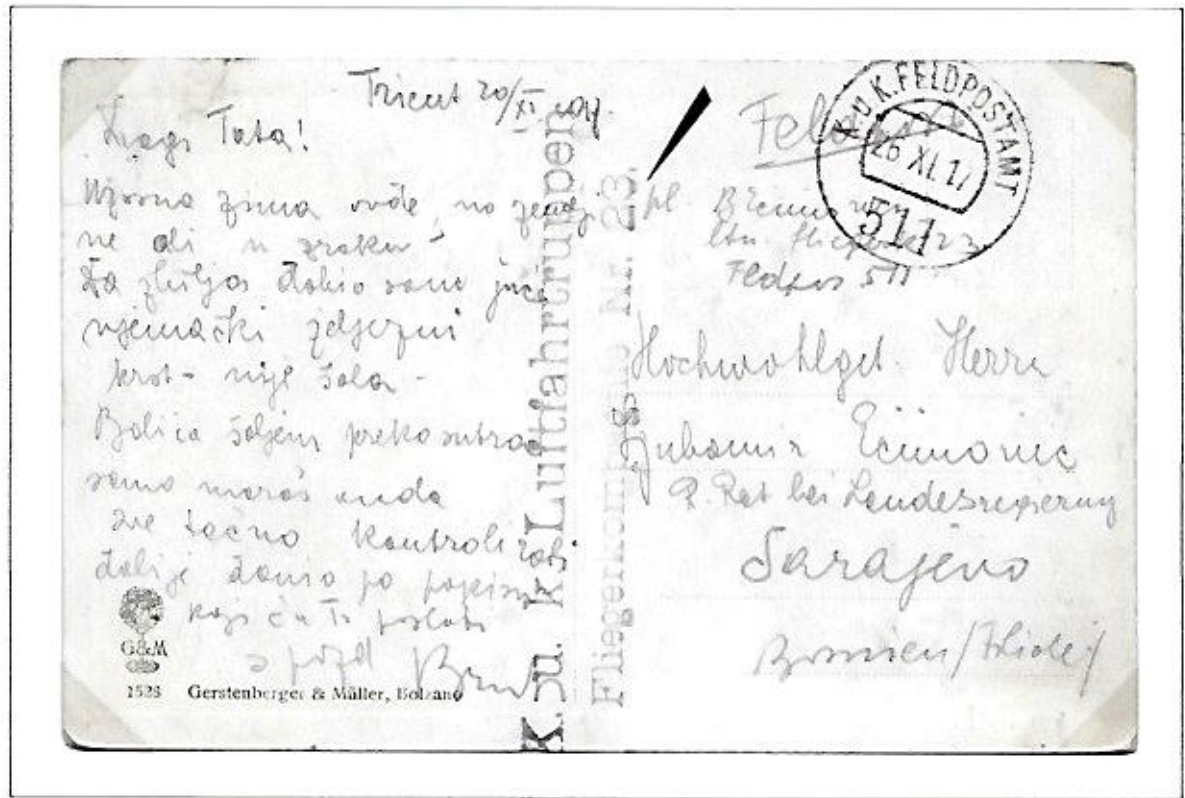 Trient 20/XI 1917
Dragi Tata!
Užasna zima ovde, na zemlji
ne ali u zraku -
Da zbilja dobio samo još
njemački željezni
krst - nije šala -
Bolica šaljem prekosutra
samo moraš onda
sve tačno kontrolirati
dali je donio po popisu
koji ću Ti poslati
s pozd
G&M
1528 Gerstenberger & Müller, Bolzano
K. u. k. Luftfahrtruppen
Fliegerkompanie Nr. 23.
Feldpost
K.u.K. FELDPOSTAMT
26 XI. 17
511
ltn. Fliegerk. 23
Feldpos 511
Hochwohlget. Herrn
Ljubomir
R. Rat bei Landesregierung
Sarajevo
Bosnien